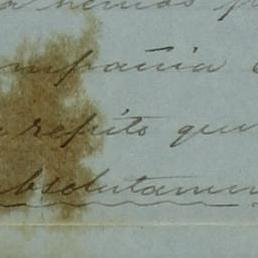 hemos
ompañia
repito que
bsolutamen